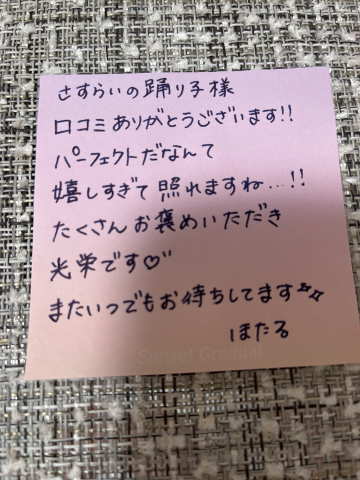 さすらいの踊り子様
口コミありがとうございます!!
パーフェクトだなんて
嬉しすぎて照れますね…!!
たくさんお褒めいただき
光栄です♡
またいつでもお待ちしてます✨
ほたる
Sunset Gradual